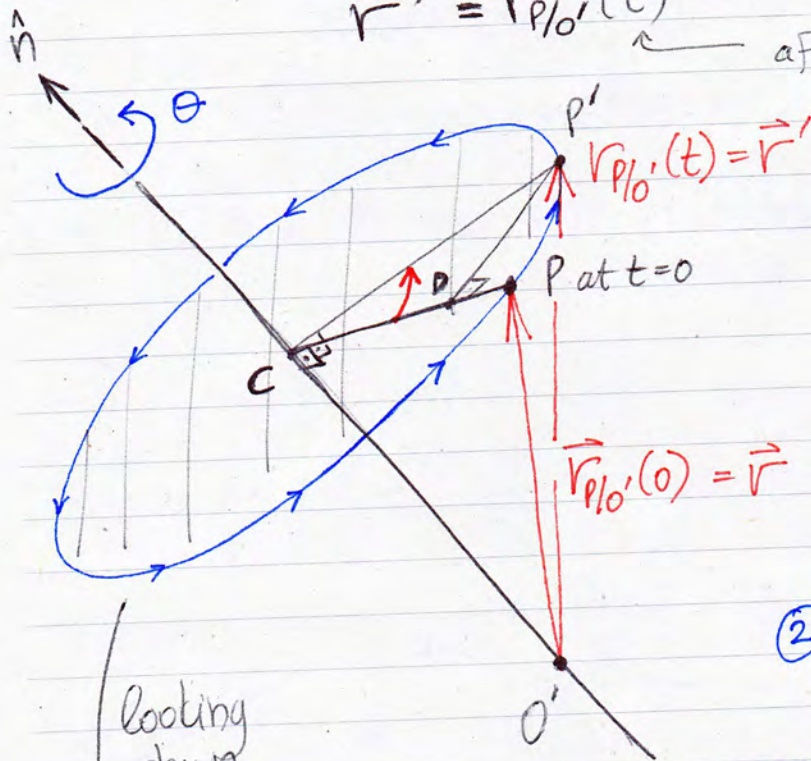 r' = r_{P/O'}(t)
← af
n̂
θ
P'
r_{P/O'}(t) = \vec{r}'
D
P at t=0
C
\vec{r}_{P/O'}(0) = \vec{r}
②
O'
looking
down